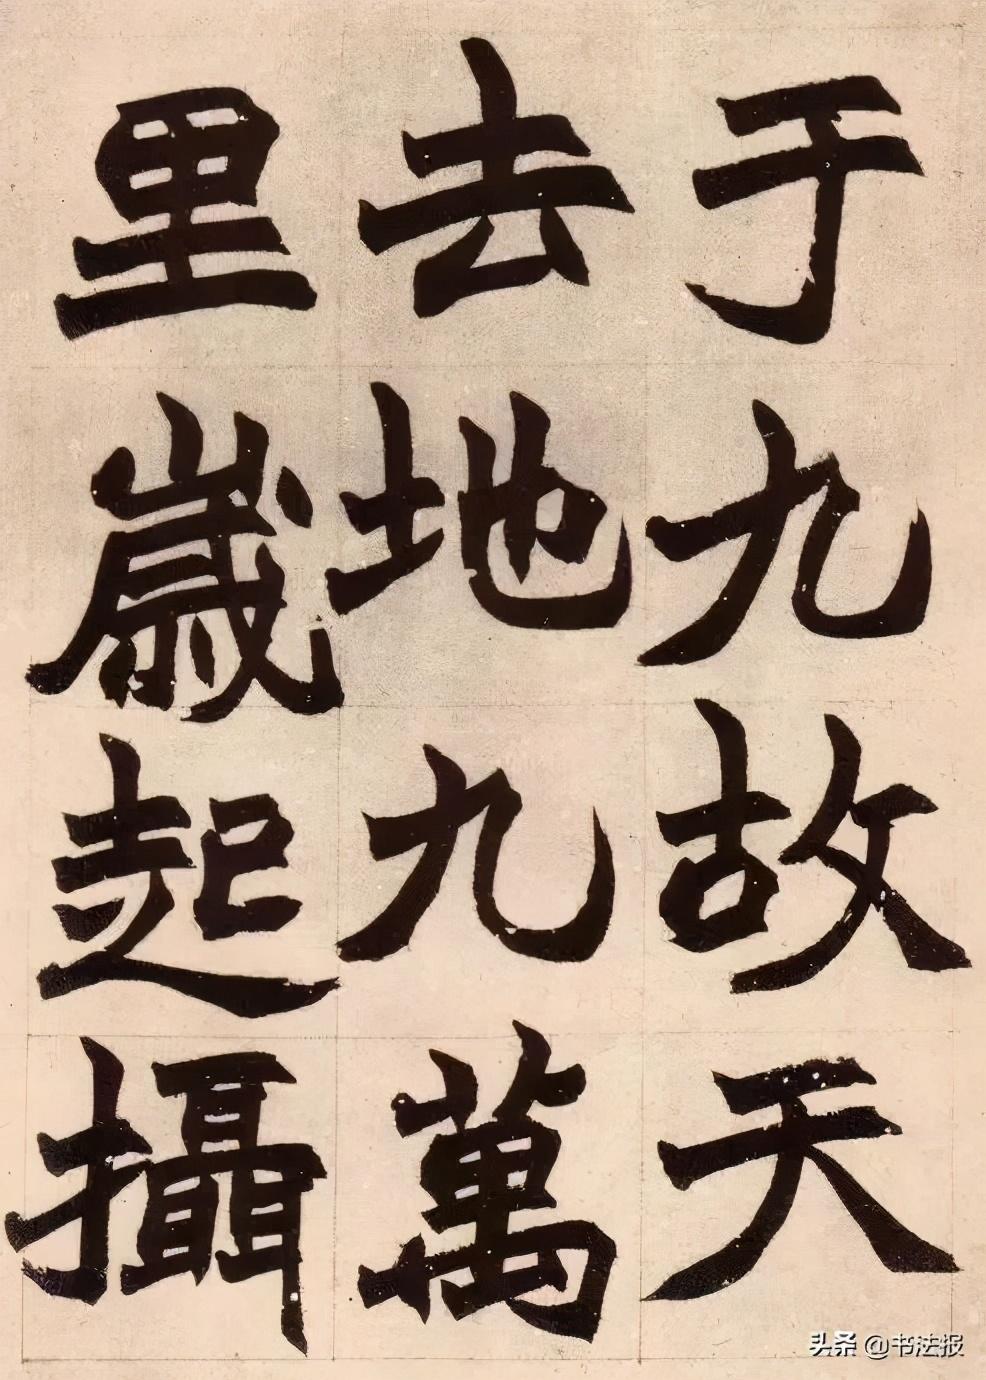 于九故天
去地九萬
里歲起攝
头条 @书法报